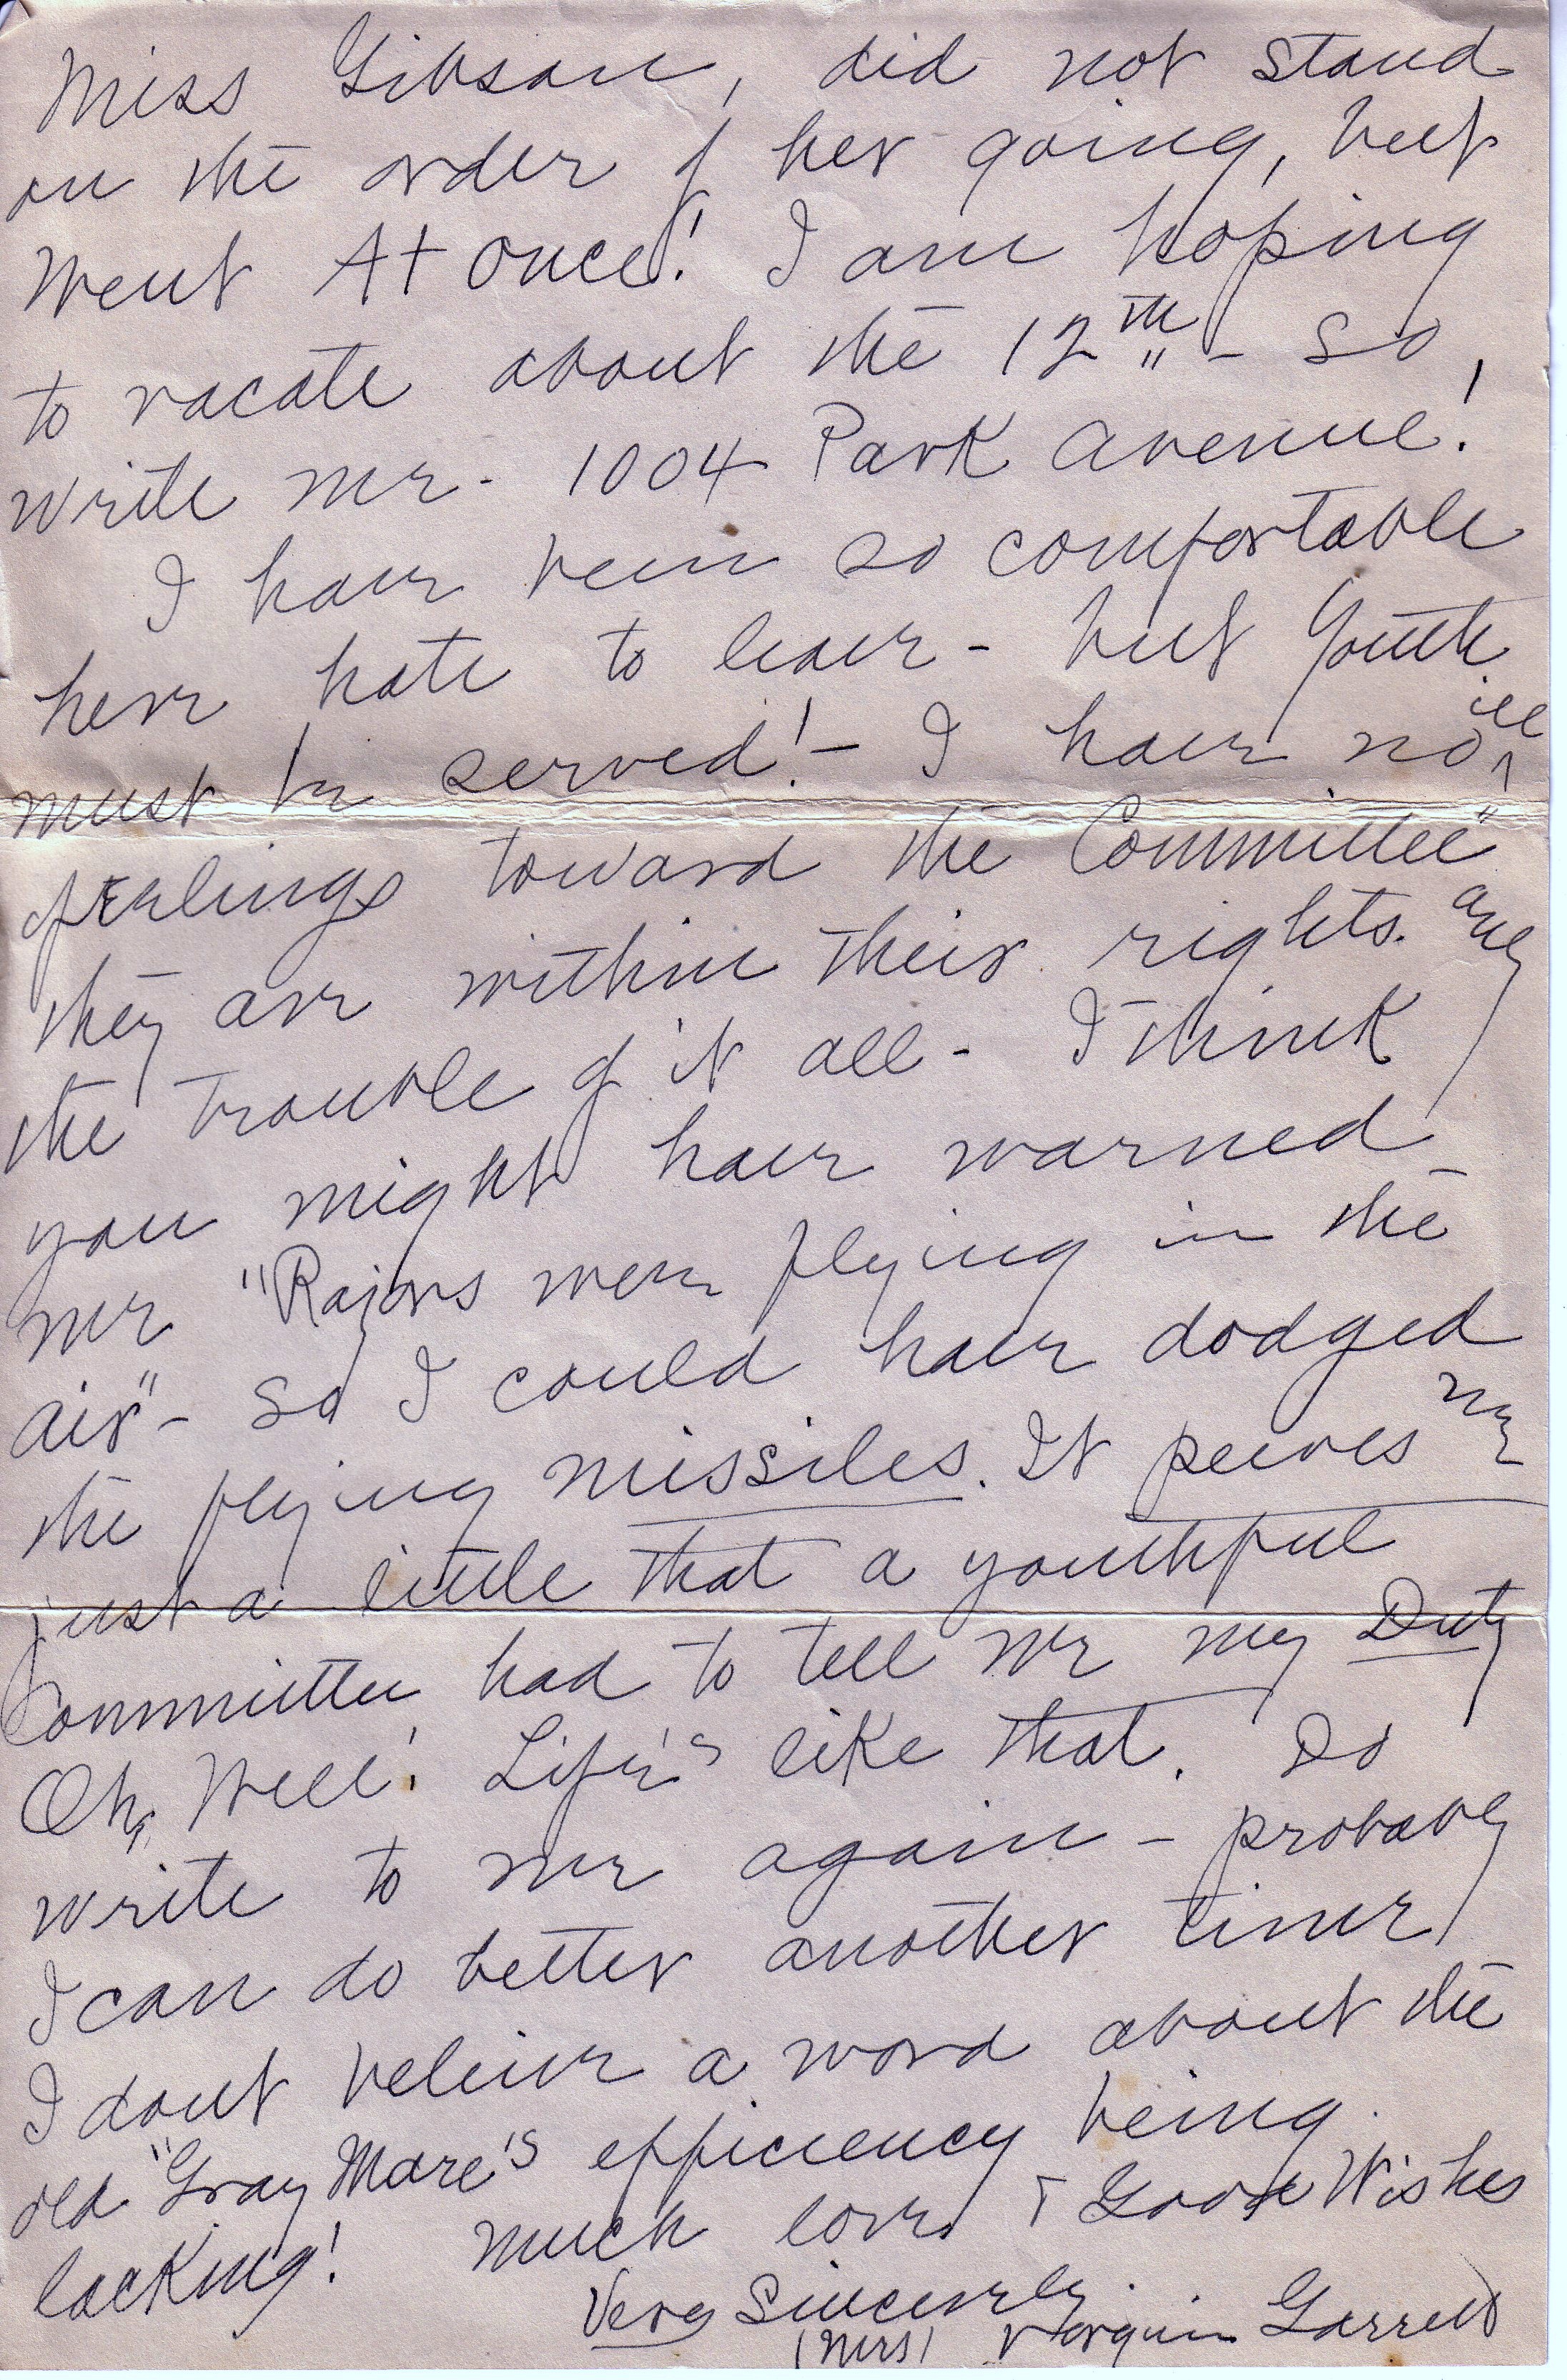 Miss Gibson, did not stand
on the order of her going, but
went At once! I am hoping
to vacate about the 12th - So,
write me - 1004 Park Avenue!
I have been so comfortable
here hate to leave - but Youth
must be served! - I have no ill
feelings toward the Committee"
they are within their rights. any
the trouble of it all - I think
you might have warned
me "Razors were flying in the
air" - So I could have dodged
the flying missiles. It peeves me
just a little that a youthful
Committee had to tell me my Duty
Oh, Well! Life's like that. Do
write to me again - probably
I can do better another time
I dont believe a word about the
old "Gray Mare's efficiency being
lacking! Much love & Good Wishes
Very Sincerely.
(Mrs) Garrett